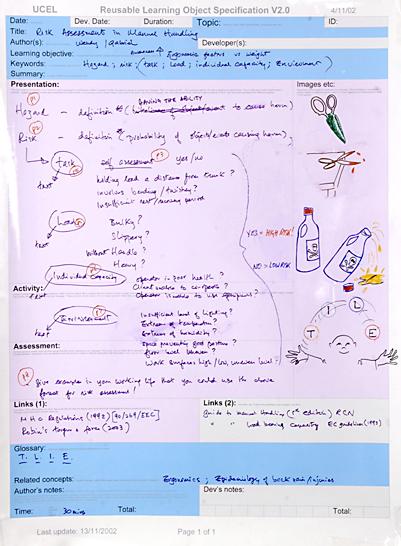 UCEL Reusable Learning Object Specification V2.0 4/11/02
Date: Dev. Date: Duration: Topic: ID:
Title: Risk Assessment in Manual Handling
Author(s): Wendy / Gabriel Developer(s):
Learning objective: Ergonomic factors vs weight
Keywords: Hazard ; risk ; (task, Load ; individual capacity ; Environment)
Summary:
Presentation: Images etc:
HAVING THE ABILITY
Hazard — definition to cause harm)
Risk — definition (probability of objects/events causing harm)
task self assessment yes/no
text holding load a distance from trunk?
involves bending / twisting?
Insufficient rest/recovery period
Load Bulky?
text Slippery?
Without Handle?
YES = HIGH RISK!
Heavy?
NO = LOW RISK
Individual Capacity operator in poor health?
Activity: Client unable to co-operate?
text Operator unable to use equipment?
Environment Insufficient level of lighting?
text Extreme of temperature?
Extreme of humidity?
T I L E
Assessment: Space preventing good posture?
floor level uneven?
Work surfaces high/low, uneven level?
Give example in your working life that you could use the above
format for risk assessment!
Links (1): Links (2):
MHO Regulations (1992) [90/269/EEC] Guide to manual Handling (5th edition) RCN
" " Load bearing capacity EC guideline
Glossary:
T. L. I. E.
Related concepts: Ergonomics ; Epidemiology of back pain/injuries
Author's notes: Dev's notes:
Time: 30 mins Total: Total:
Last update: 13/11/2002 Page 1 of 1